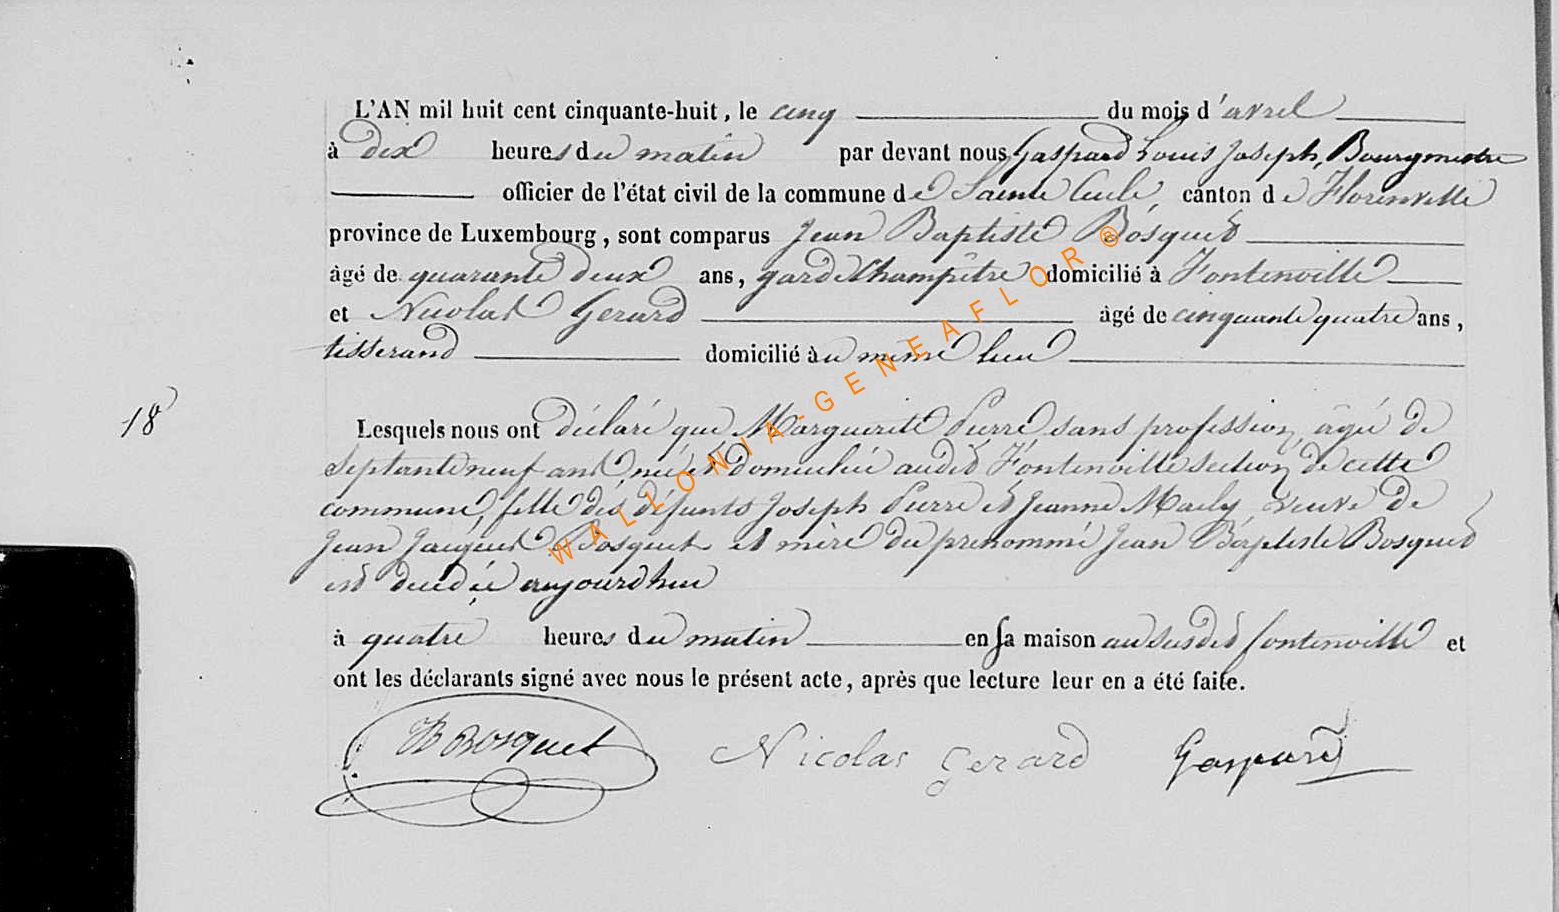 L'AN mil huit cent cinquante-huit, le cinq du mois d'avril
à dix heures du matin par devant nous Gaspard Louis Joseph, Bourgmestre
officier de l'état civil de la commune de Sainte Cécile, canton de Florenville
province de Luxembourg, sont comparus Jean Baptiste Bosquet
âgé de quarante deux ans, garde Champêtre domicilié à Fontenoille
et Nicolas Gerard âgé de cinquante quatre ans,
tisserand domicilié au même lieu
18
Lesquels nous ont déclaré que Marguerite Pierre sans profession, âgée de
septante neuf ans née et domiciliée audit Fontenoille section de cette
commune, fille des défunts Joseph Pierre et Jeanne Maily, veuve de
Jean Jacques Bosquet et mère du prénommé Jean Baptiste Bosquet
est décédée aujourd'hui
à quatre heures du matin en sa maison au susdit fontenoille et
ont les déclarants signé avec nous le présent acte, après que lecture leur en a été faite.
JB Bosquet Nicolas Gerard Gaspard
WALLONIA-GENEAFLOR ®